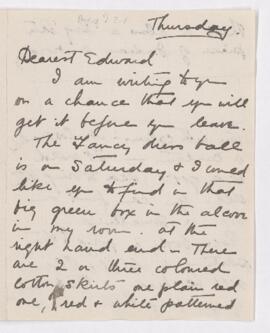 Thursday.
Dearest Edward
I am writing to you
on a chance that you will
get it before you leave.
The Fancy dress ball
is on Saturday & I want
like you to find in that
big green box in the alcove
in my room. at the
right hand end – There
are 2 or three coloured
cotton skirts one plain red
one, red & white patterned